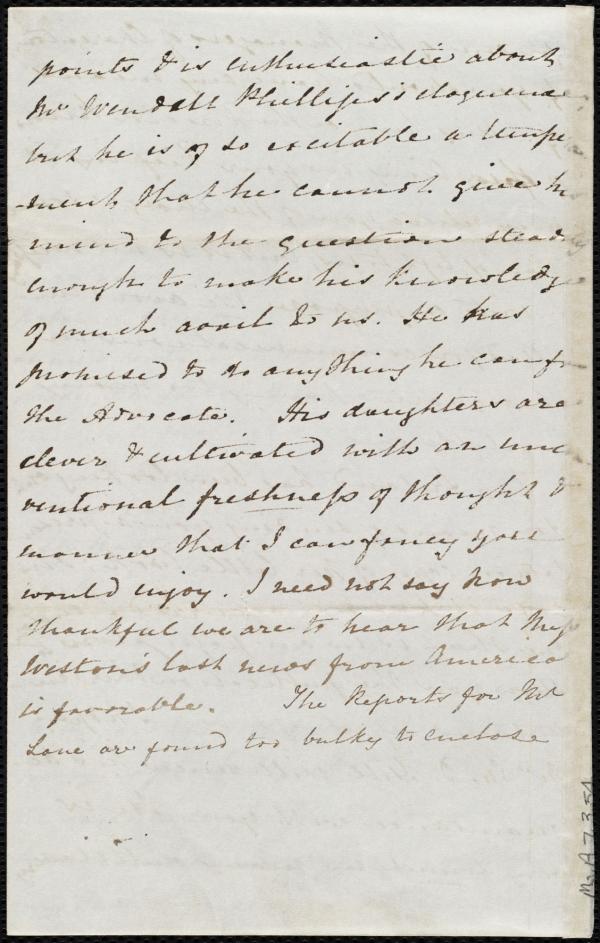 points & is enthusiastic about
Mr Wendall Phillips's eloquence
but he is of so excitable a tempe
-ment that he cannot give h
mind to the question stead
enough to make his knowledge
of much avail to us. He has
promised to do anything he can f
the Advocate. His daughters are
clever & cultivated with an unc
ventional freshness of thought &
manner that I can fancy you
would enjoy. I need not say how
thankful we are to hear that Miss
Weston's last news from America
is favorable. The Reports for Mr
Love are found too bulky to enclose
Ms. A.7.3.54